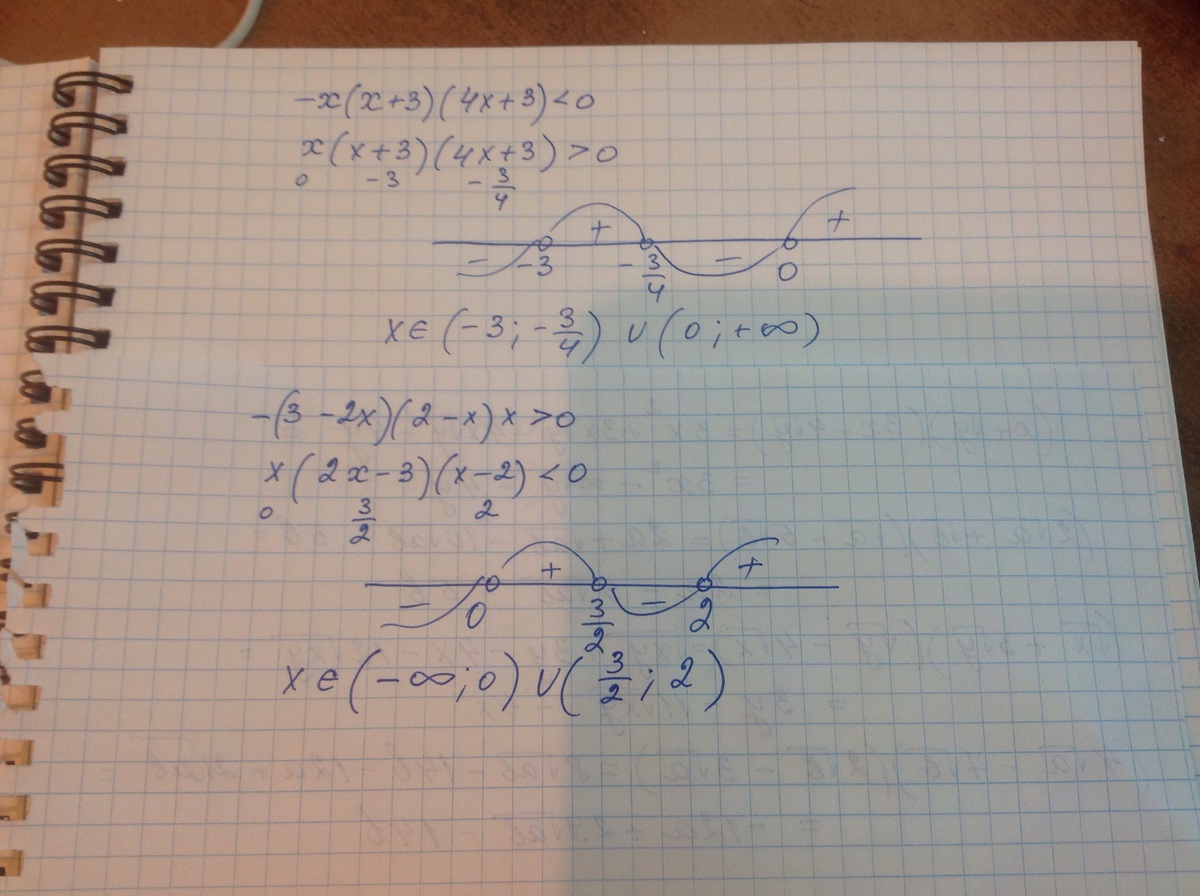 -x(x+3)(4x+3)<0
x(x+3)(4x+3)>0
0 -3 -3/4
- + - +
-3 -3/4 0
x∈(-3;-3/4) ∪ (0;+∞)
-(3-2x)(2-x)x>0
x(2x-3)(x-2)<0
0 3/2 2
- + - +
0 3/2 2
x∈(-∞;0)∪(3/2;2)